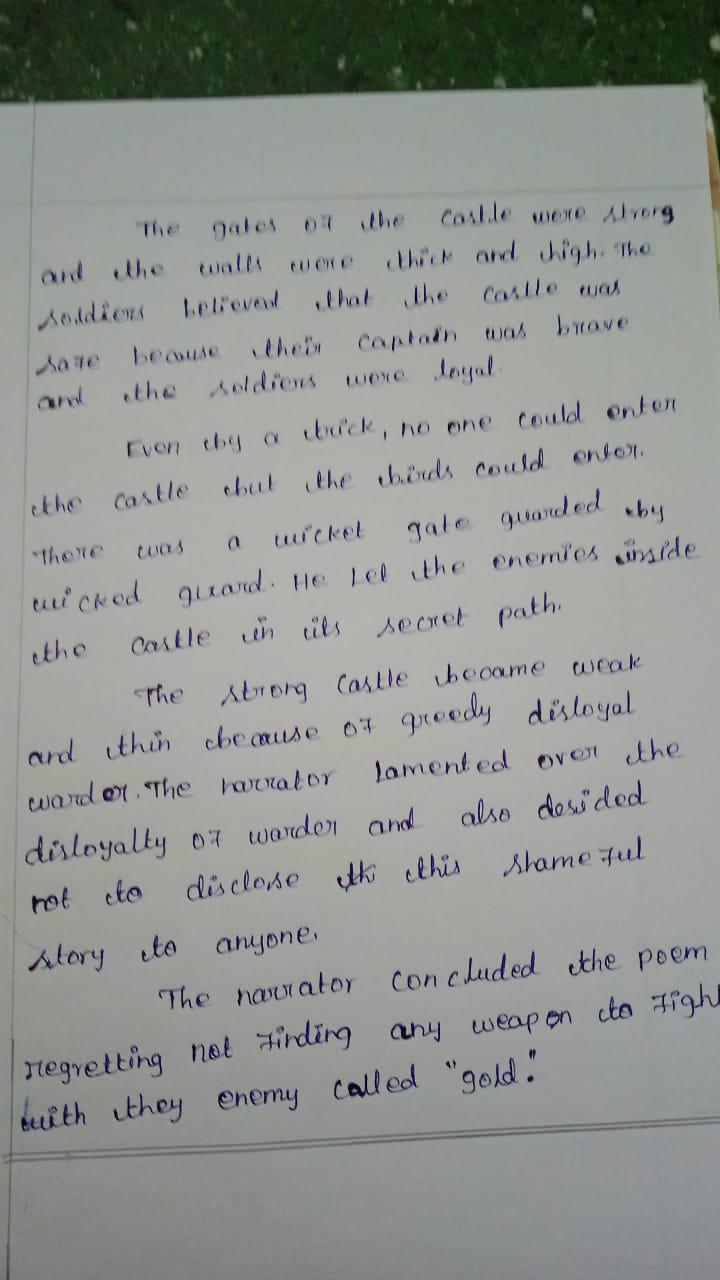 The gates of the Castle were strong
and the walls were thick and high. The
soldiers believed that the castle was
safe because their captain was brave
and the soldiers were loyal.
Even by a trick, no one could enter
the castle but the birds could enter.
There was a wicket gate guarded by
wicked guard. He let the enemies inside
the castle in its secret path.
The strong castle became weak
and thin because of greedy disloyal
warder. The narrator lamented over the
disloyalty of warder and also desided
not to disclose this shameful
story to anyone.
The narrator concluded the poem
regretting not finding any weapon to fight
with they enemy called "gold."